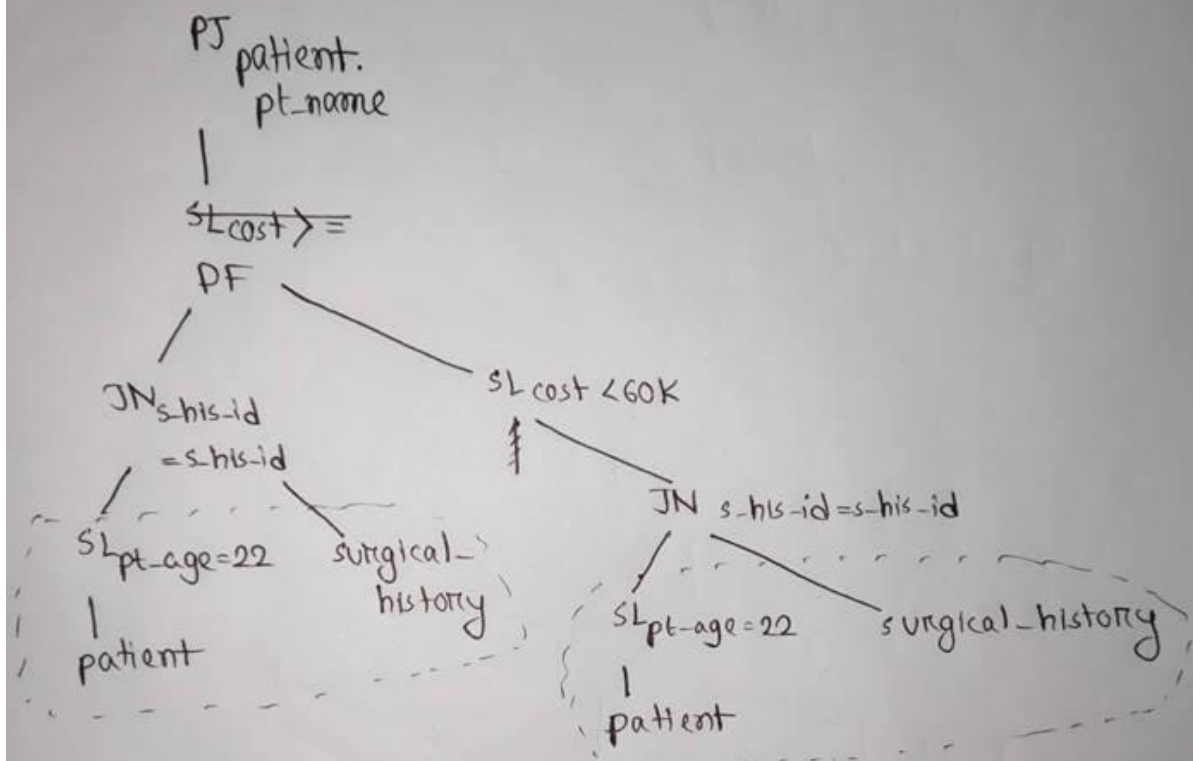 PJ patient.
pt_name
SL cost >=
DF
SL cost <60K
JN s_his_id
=s_his_id
JN s_his_id=s_his_id
SL pt_age=22
surgical_
history
patient
SL pt_age=22
surgical_history
patient